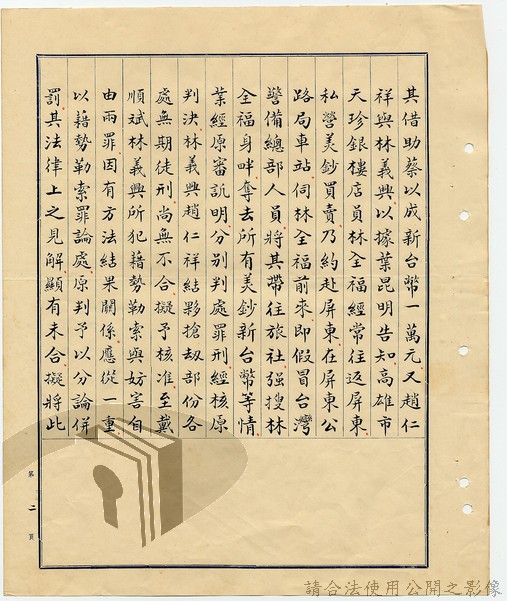 其借助蔡以成新台幣一萬元又趙仁
祥與林義興以據葉昆明告知高雄市
天珍銀樓店員林全福經常往返屏東
私營美鈔買賣乃約赴屏東在屏東公
路局車站伺林全福前來即假冒台灣
警備總部人員將其帶往旅社強搜林
全福身畔奪去所有美鈔新台幣等情
業經原審訊明分別判處罪刑經核原
判決林義興趙仁祥結夥搶劫部份各
處無期徒刑尚無不合擬予核准至戴
順斌林義興所犯藉勢勒索與妨害自
由兩罪因有方法結果關係應從一重
以藉勢勒索罪論處原判予以分論併
罰其法律上之見解顯有未合擬將此
第二頁
請合法使用公開之影像